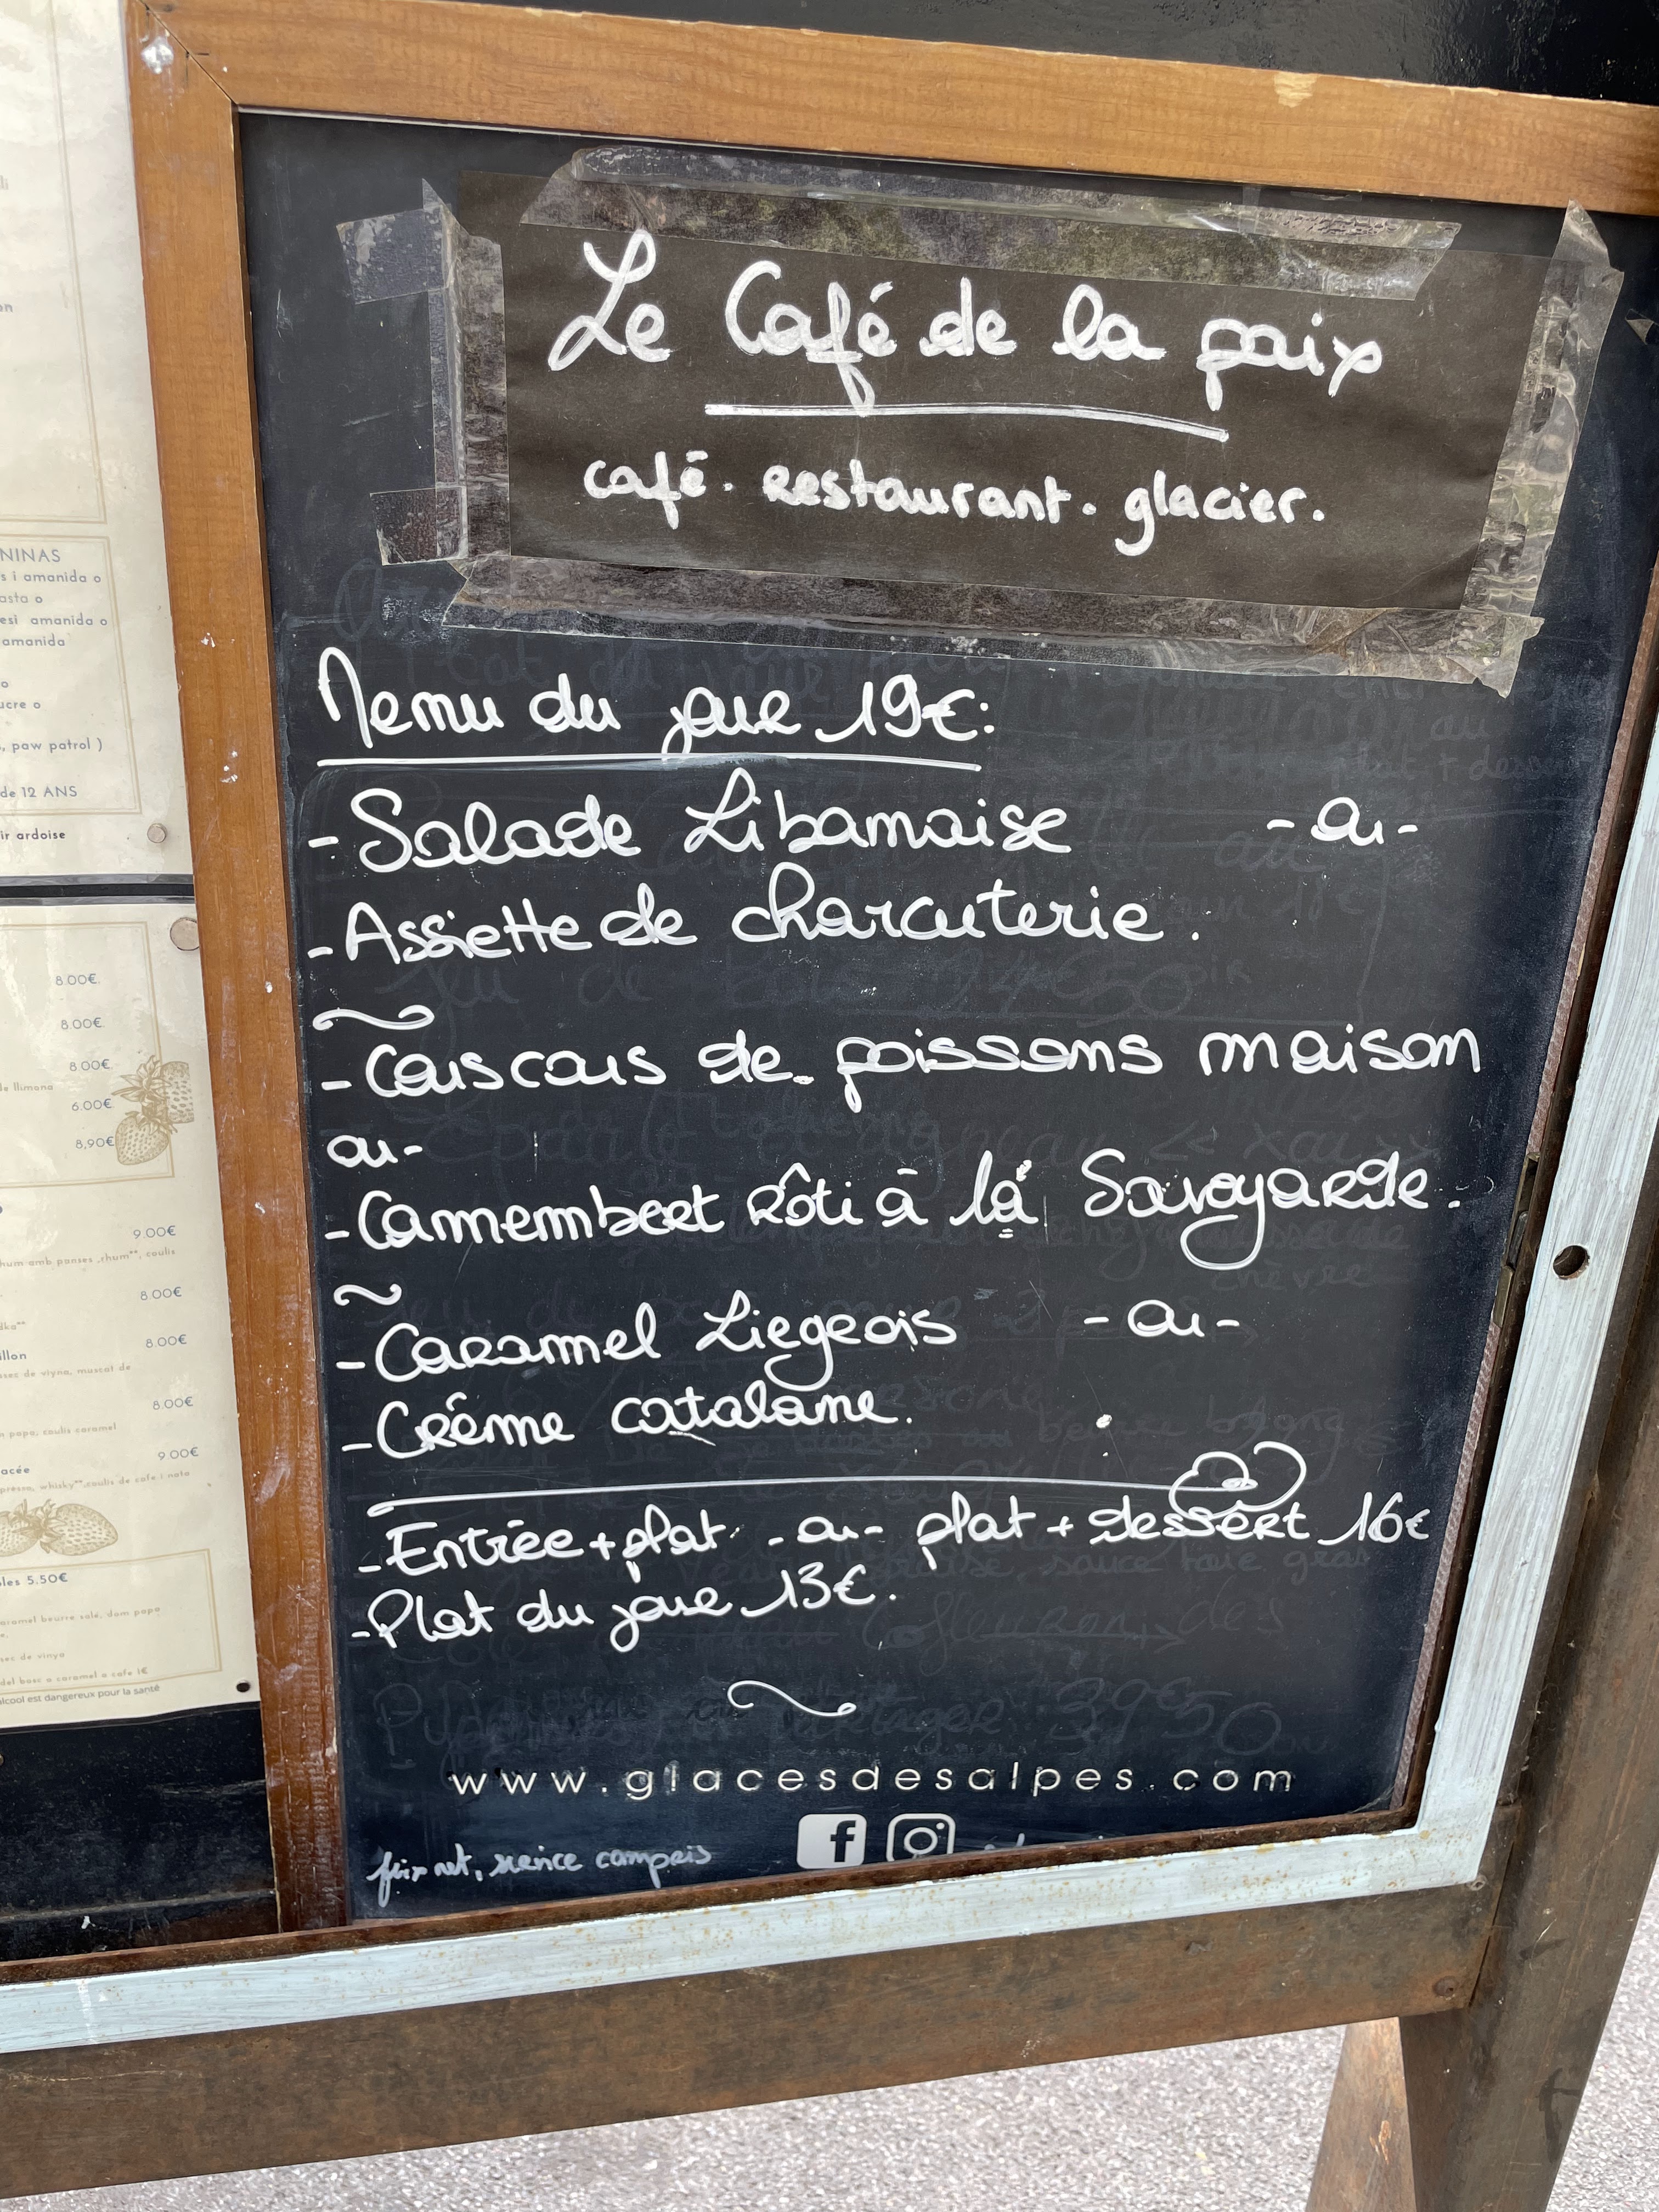 Le Café de la paix
café. restaurant. glacier.
Menu du jour 19€:
- Salade Libanaise - ou -
- Assiette de charcuterie.
- Couscous de poissons maison
ou -
- Camembert Rôti à la Savoyarde.
- Caramel Liegeois - ou -
- Crème catalane.
- Entrée + plat - ou - plat + dessert 16€
- Plat du jour 13€.
www.glacesdesalpes.com
prix net, service compris
NINAS
s i amanida o
asta o
esi amanida o
amanida
o
ucre o
, paw patrol )
de 12 ANS
ir ardoise
8.00€
8.00€
8.00€
de llimona
6.00€
8,90€
9.00€
hum amb panses ,rhum**, coulis
8.00€
dka**
8.00€
illon
sec de vinya, muscat de
8.00€
n papa, coulis caramel
9.00€
acée
presso, whisky**,coulis de cafe i nata
les 5.50€
aramel beurre salé, dom papa
sec de vinya
del bosc o caramel o cafe 1€
alcool est dangereux pour la santé